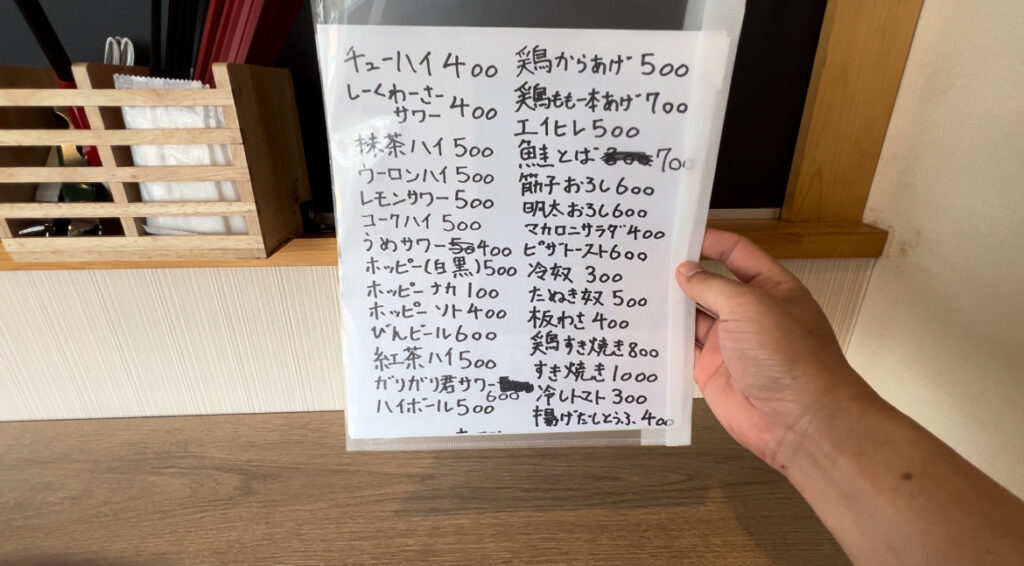 チューハイ 400
しーくわーさー
サワー 400
抹茶ハイ 500
ウーロンハイ 500
レモンサワー 500
コークハイ 500
うめサワー 500 400
ホッピー(白黒) 500
ホッピー ナカ 100
ホッピー ソト 400
びんビール 600
紅茶ハイ 500
ガリガリ君サワー
600
ハイボール 500
鶏からあげ 500
鶏もも一本あげ 700
エイヒレ 500
鮭とば 700
筋子おろし 600
明太おろし 600
マカロニサラダ 400
ピザトースト 600
冷奴 300
たぬき奴 500
板わさ 400
鶏すき焼き 800
すき焼き 1000
冷しトマト 300
揚げだしとうふ 400